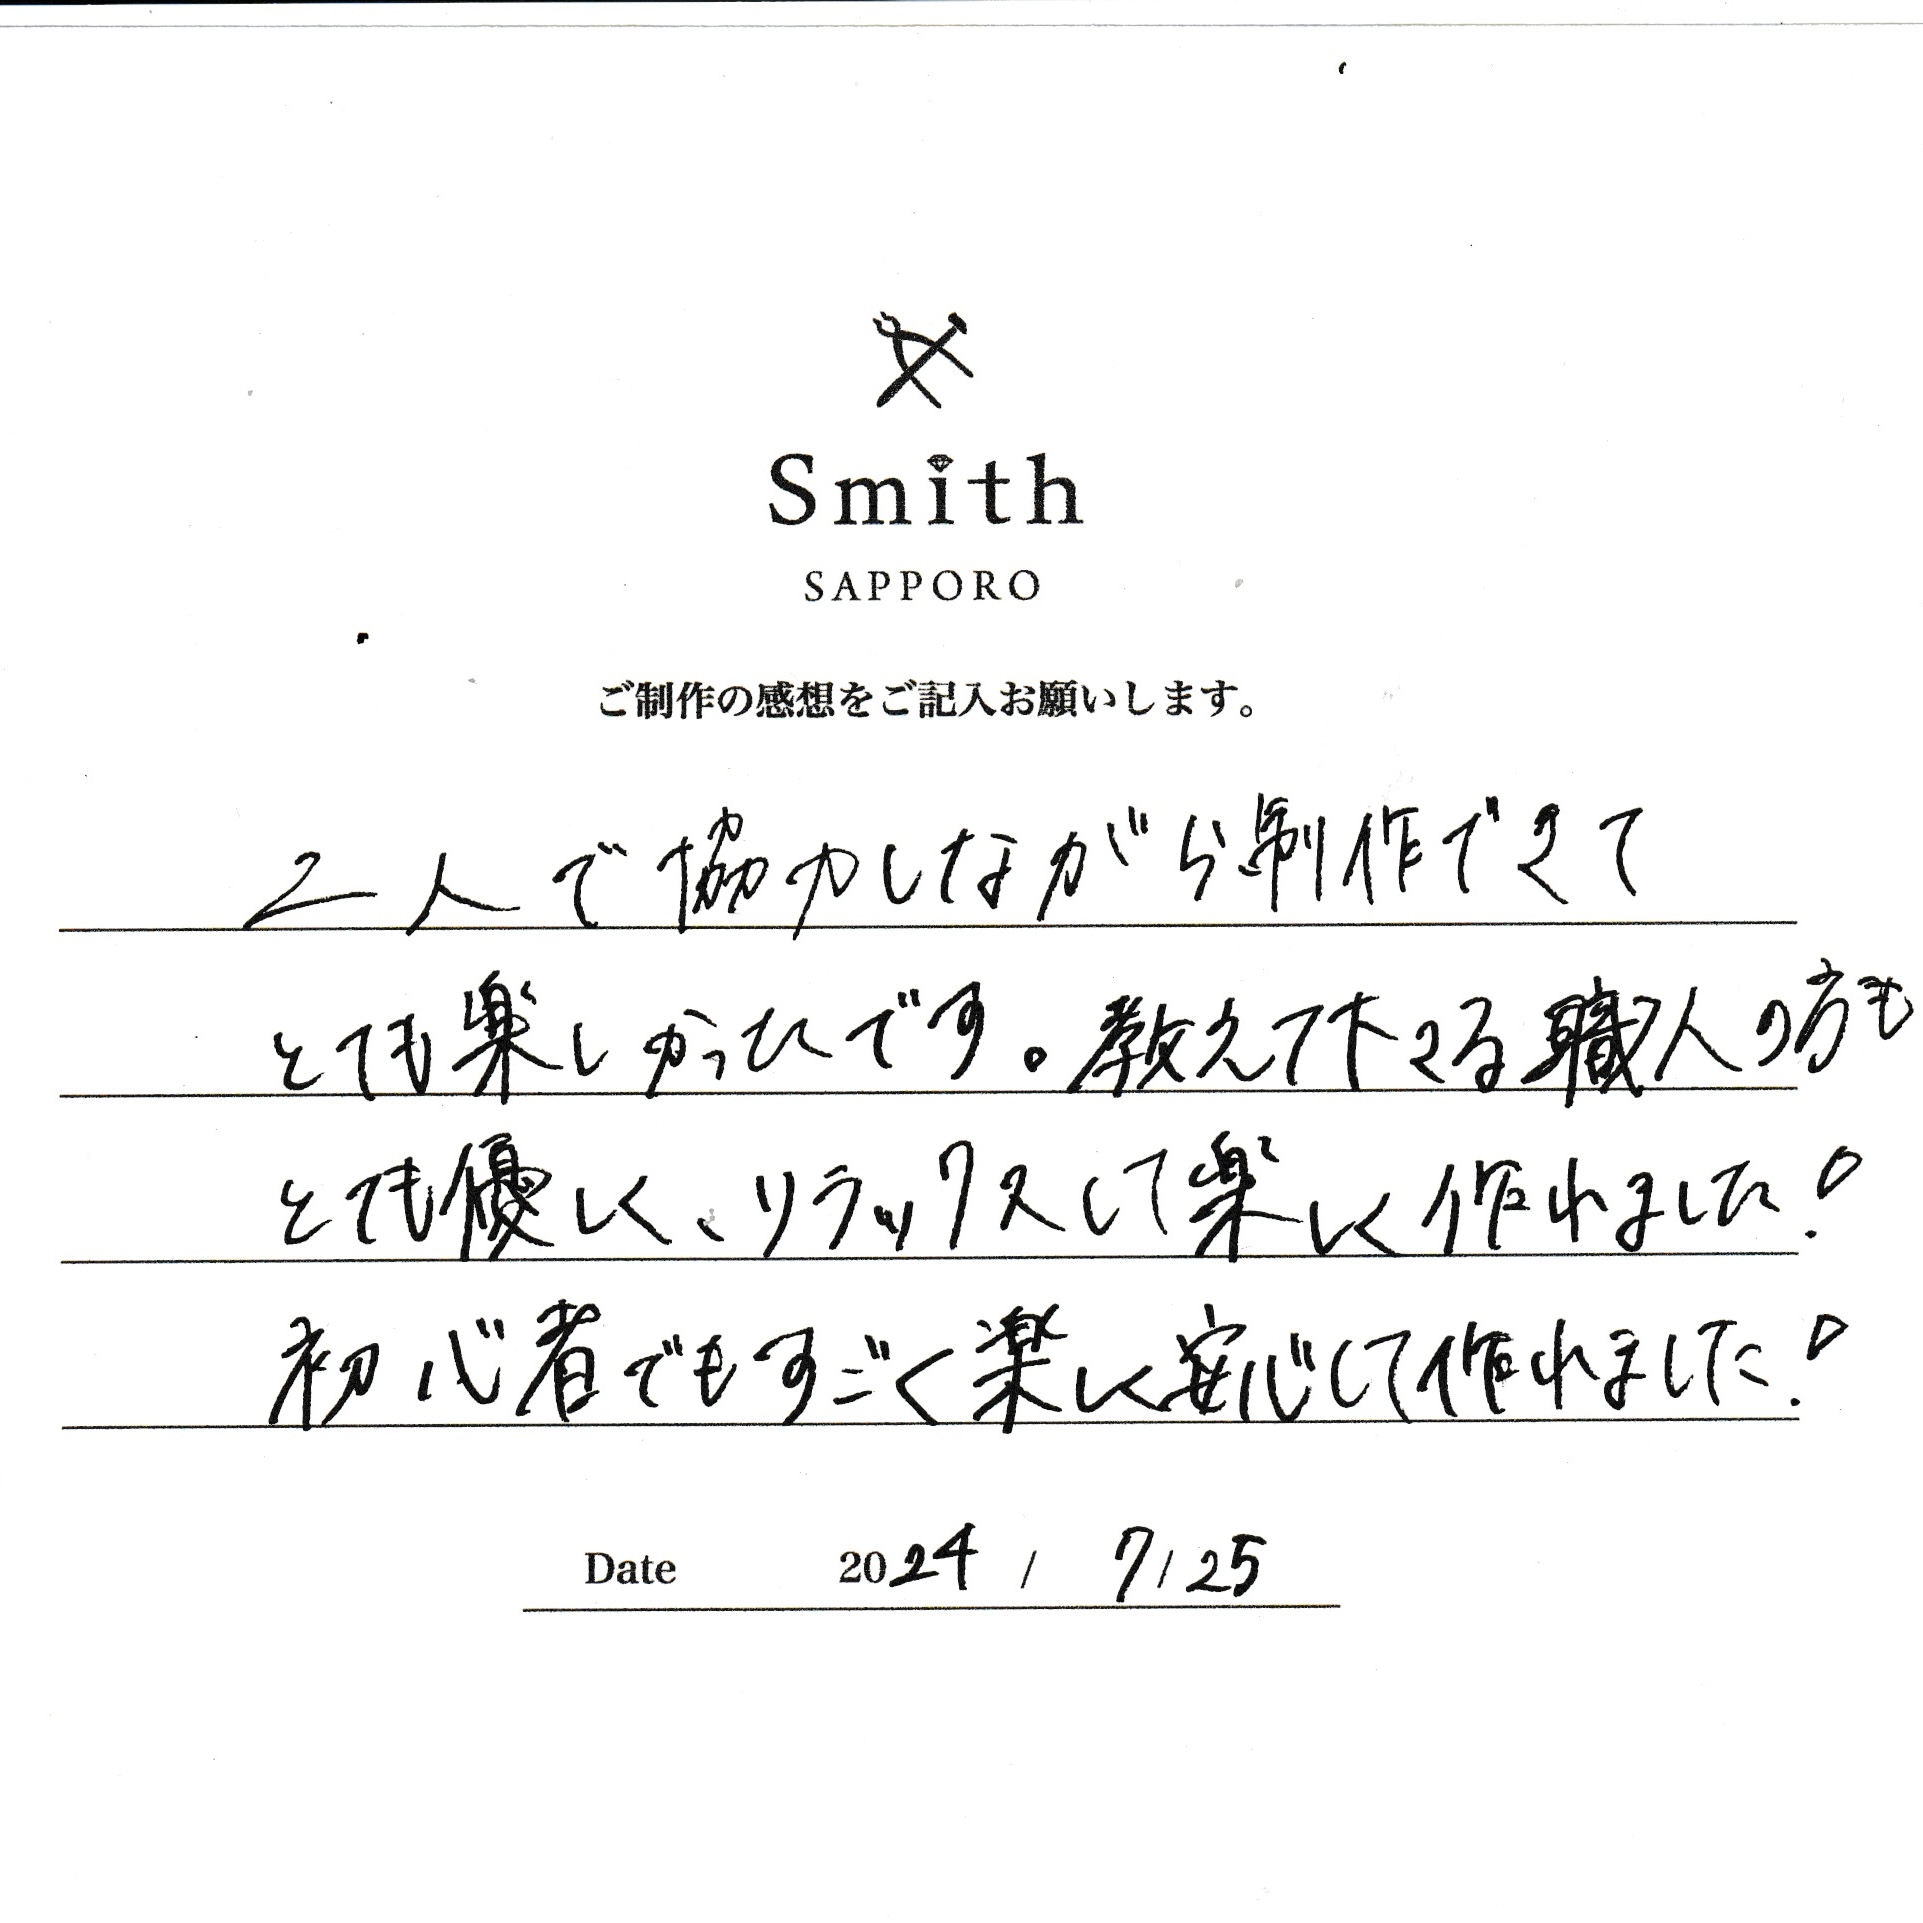 Smith
SAPPORO
ご制作の感想をご記入お願いします。
2人で協力しながら制作できて
とても楽しかったです。教えて下さる職人の方も
とても優しく、リラックスして楽しく作れました!
初心者でもすごく楽しく安心して作れました!
Date 2024 / 7/25